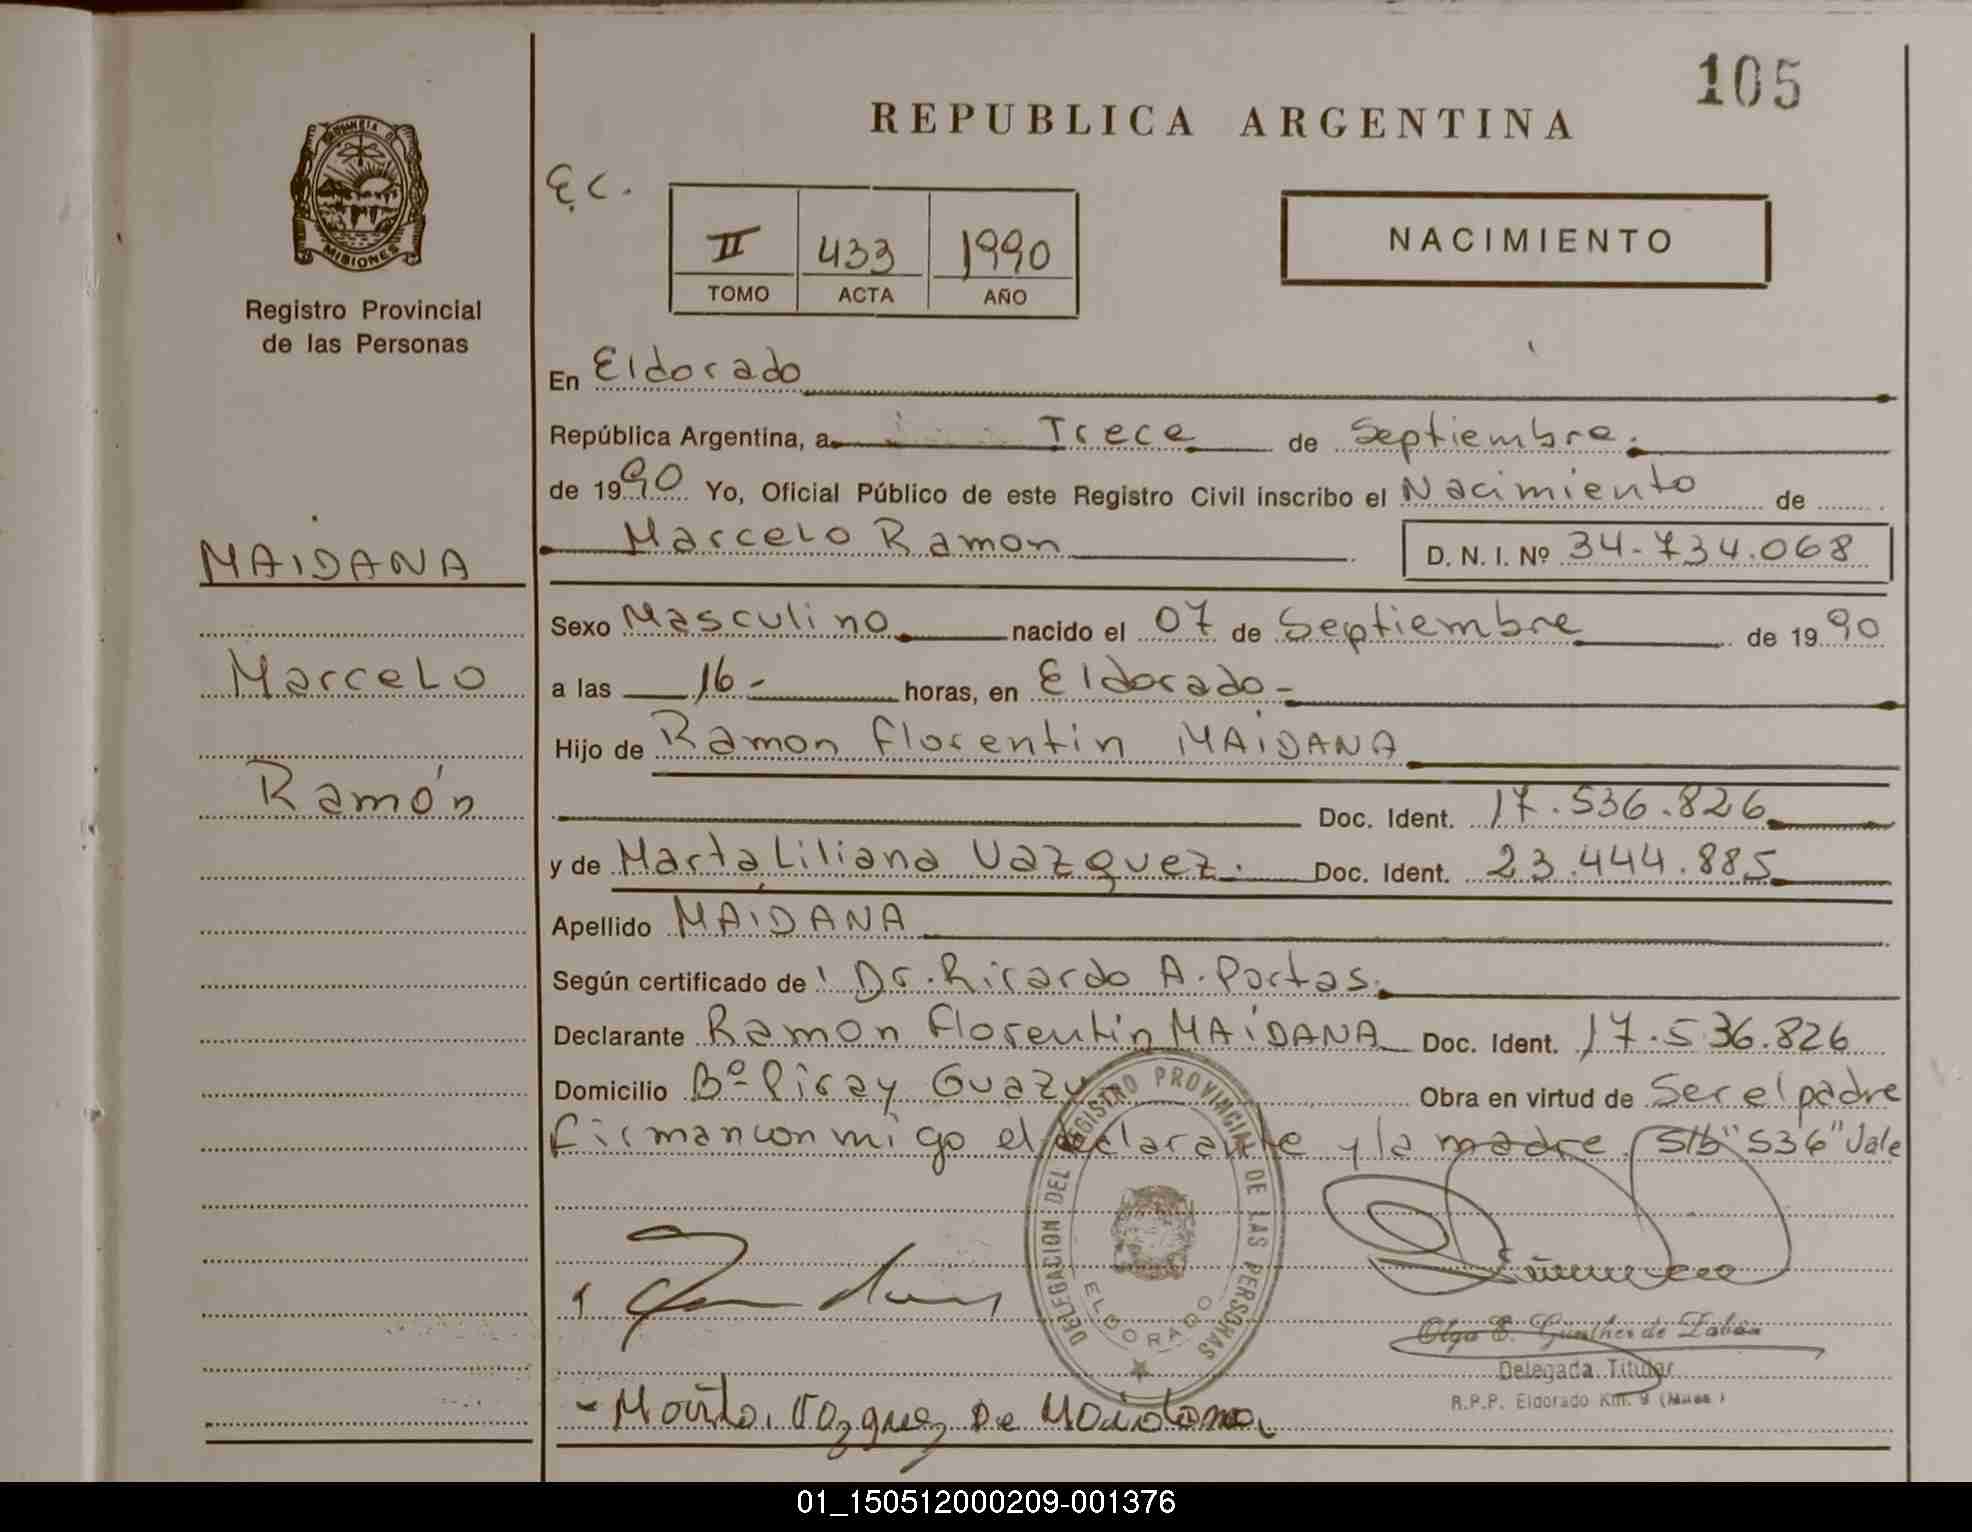 105
REPUBLICA ARGENTINA
PROVINCIA DE MISIONES
Registro Provincial
de las Personas
E.C.
II 433 1990
TOMO ACTA AÑO
NACIMIENTO
En Eldorado
República Argentina, a Trece de Septiembre.
de 1990 Yo, Oficial Público de este Registro Civil inscribo el Nacimiento de
Marcelo Ramon D. N. I. Nº 34.734.068
MAIDANA
Marcelo
Ramón
Sexo Masculino nacido el 07 de Septiembre de 1990
a las 16- horas, en Eldorado-
Hijo de Ramon Florentin MAIDANA
Doc. Ident. 17.536.826
y de Marta Liliana Vazquez. Doc. Ident. 23.444.885
Apellido MAIDANA
Según certificado de Dr. Ricardo A. Portas.
Declarante Ramon Florentin MAIDANA Doc. Ident. 17.536.826
Domicilio Bº Piray Guazu Obra en virtud de Ser el padre
firman conmigo el declarante y la madre. S/b "536" Vale
DELEGACION DEL REGISTRO PROVINCIAL DE LAS PERSONAS
ELDORADO
Olga E. Günther de
Delegada Titular
R.P.P. Eldorado Km. 9 (Mnes.)
- Marta Vazquez De Maidana
01_150512000209-001376